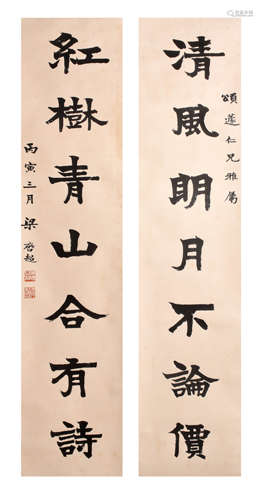 清風明月不論價
頌蓮仁兄雅屬
紅樹青山合有詩
丙寅三月 梁啓超